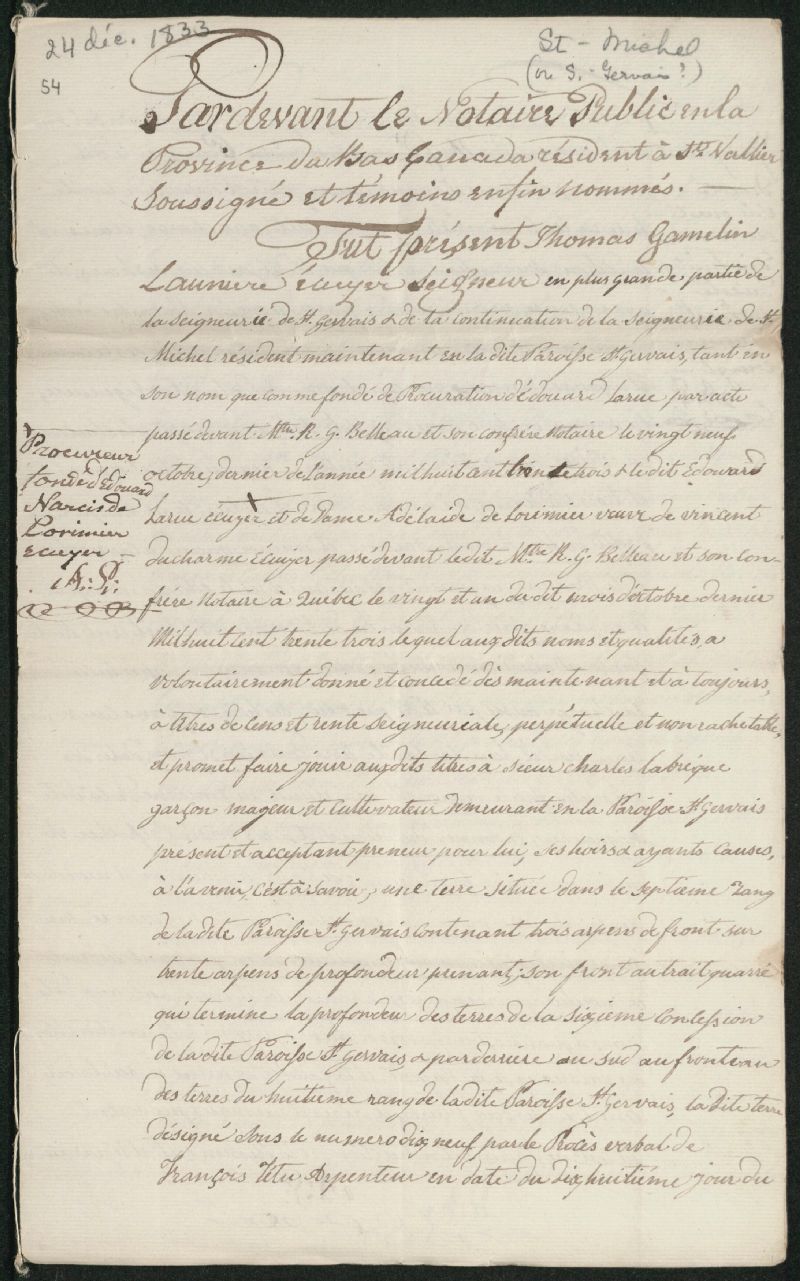 24 déc. 1833
St - Michel
(ou S.-Gervais?)
54
Pardevant le Notaire Public en la
Province du Bas Canada résident à St. Vallier
Soussigné et témoins enfin nommés. —
Fut présent Thomas Gamelin
Launiere écuyer Seigneur en plus grande partie de
la seigneurie de St. Gervais & de la continuation de la seigneurie de St.
Michel résident maintenant en la dite Paroisse St. Gervais, tant en
son nom que comme fondé de Procuration d'édouard Larue par acte
passé devant Mtre. R. G. Belleau et son confrère Notaire le vingt neuf
octobre dernier de l'année mil huit cent trente trois & le dit Edouard
Larue écuyer et de Dame Adélaide de Lorimier veuve de vincent
ducharme Ecuyer passé devant le dit Mtre R. G. Belleau et son con-
frére Notaire à Québec le vingt et un du dit mois d'octobre dernier
Mil huit cent trente trois lequel aux dits noms et qualités, a
volontairement donné et concedé dès maintenant et à toujours,
à titres de Cens et rente Seigneuriale, perpétuelle et non rachetable,
et promet faire jouir aux dits titres à sieur Charles Labréque
garçon majeur et Cultivateur demeurant en la Paroisse St. Gervais
présent et acceptant preneur pour lui, ses hoirs & ayants causes,
à l'avenir, c'est à savoir, une terre située dans le septième rang
de la dite Paroisse St. Gervais contenant trois arpens de front sur
trente arpens de profondeur prenant son front au trait quarré
qui termine la profondeur des terres de la sixieme Concession
de la dite Paroisse St. Gervais, & par derrière au sud au fronteau
des terres du huitieme rang de la dite Paroisse St. Gervais, la dite terre
désigné sous le numero dix neuf par le Procès verbal de
François Têtu Arpenteur en date du dix huitiéme jour du
Procureur
fondé d'Edouard
Narcis de
Lorimier
ecuyer —